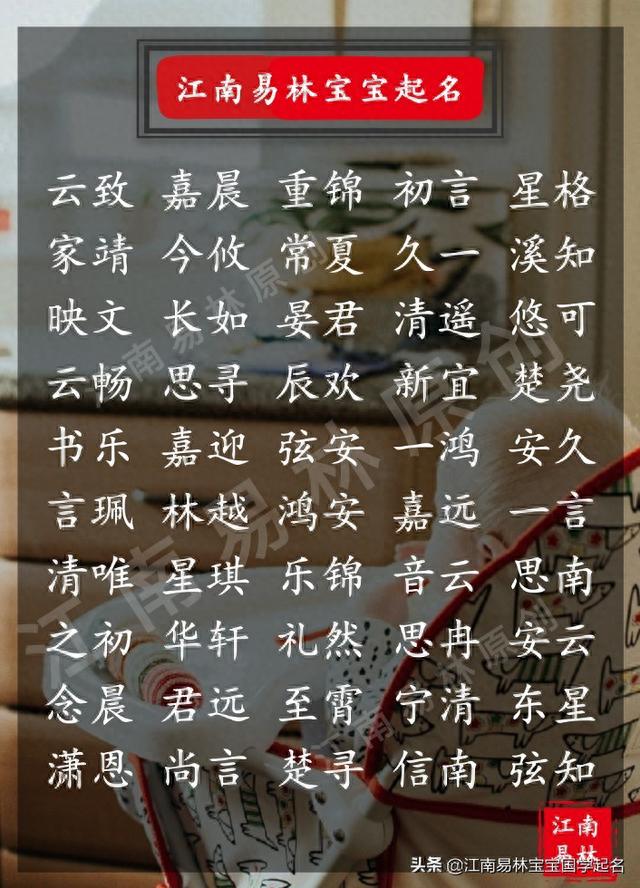 江南易林宝宝起名
云致 嘉晨 重锦 初言 星格
家靖 今攸 常夏 久一 溪知
映文 长如 晏君 清遥 悠可
云畅 思寻 辰欢 新宜 楚尧
书乐 嘉迎 弦安 一鸿 安久
言珮 林越 鸿安 嘉远 一言
清唯 星琪 乐锦 音云 思南
之初 华轩 礼然 思冉 安云
念晨 君远 至霄 宁清 东星
潇恩 尚言 楚寻 信南 弦知
江南易林原创
江南易林原创
江南易林原创
江南
易林
头条 @江南易林宝宝国学起名